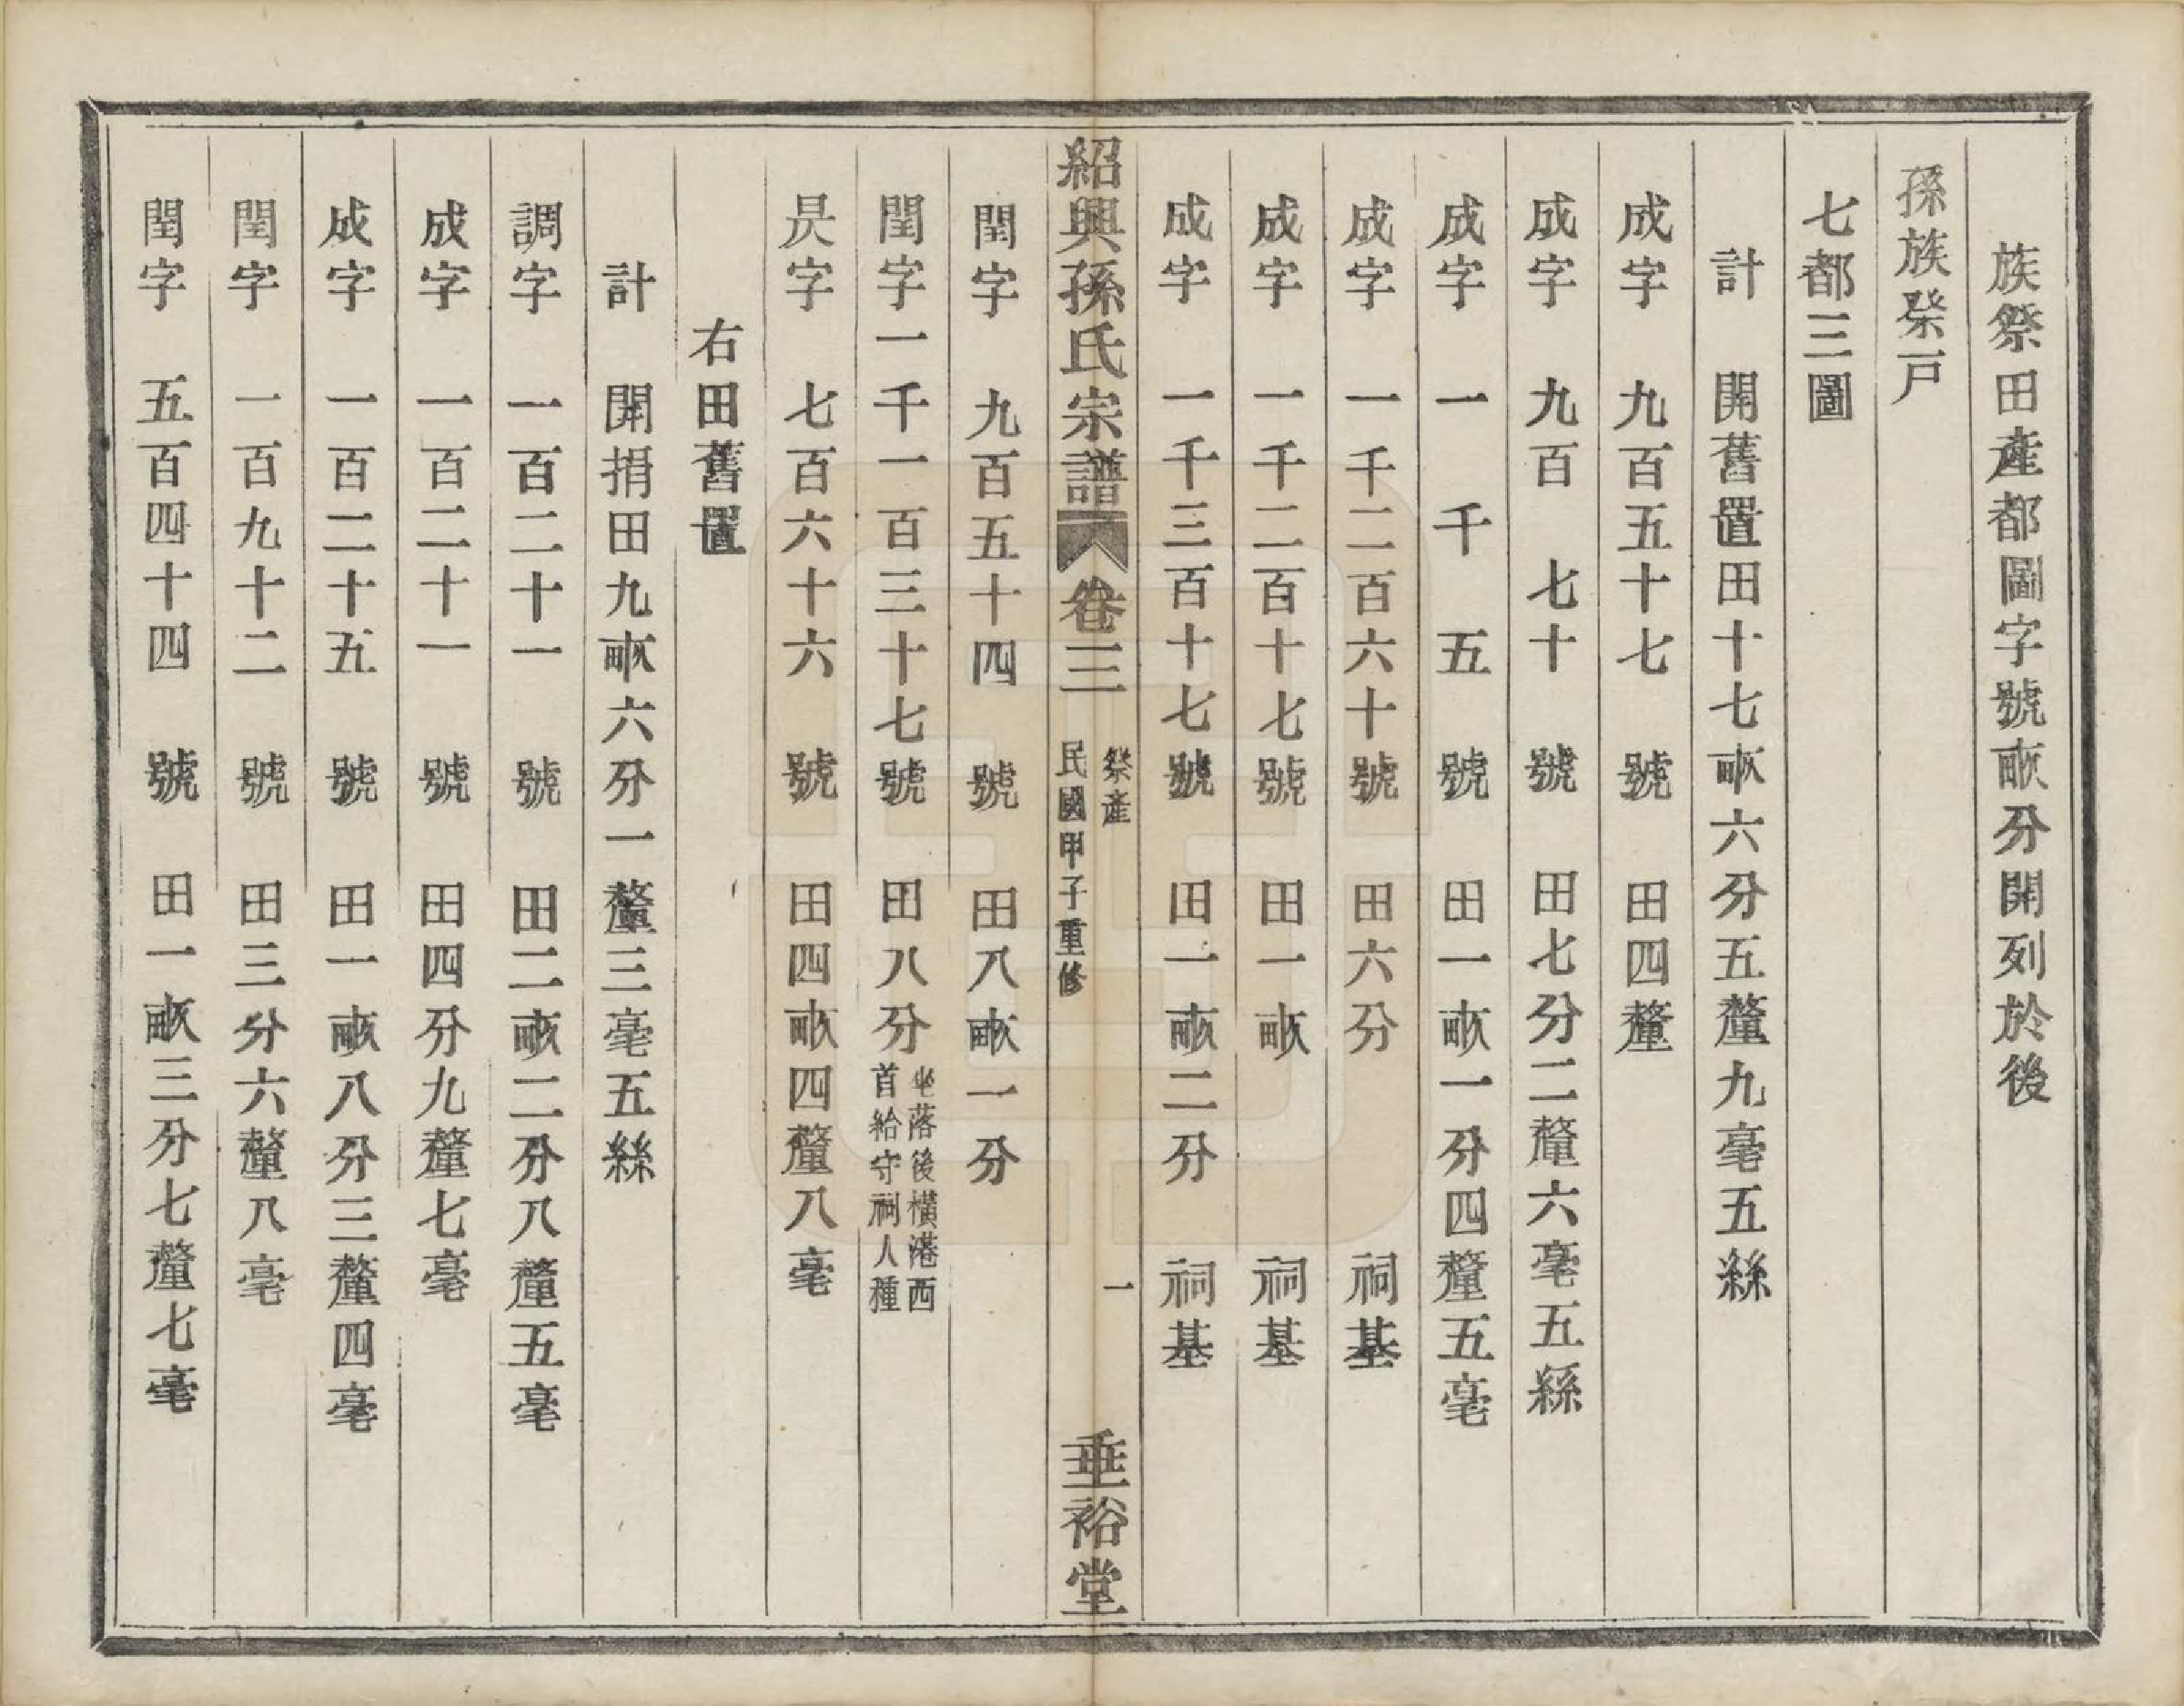 族祭田產都圖字號畝分開列於後
孫族祭戸
七都三圖
計　開舊置田十七畝六分五釐九毫五絲
成字　九百五十七　號　田四釐
成字　九百　七十　號　田七分二釐六毫五絲
成字　一　千　五　號　田一畝一分四釐五毫
成字　一千二百六十號　田六分　祠基
成字　一千二百十七號　田一畝　祠基
成字　一千三百十七號　田一畝二分　祠基
紹興孫氏宗譜　卷三　祭產　民國甲子重修　一　垂裕堂
閏字　九百五十四　號　田八畝一分
閏字一千一百三十七號　田八分　坐落後橫港西首給守祠人種
昃字　七百六十六　號　田四畝四釐八毫
右田舊置
計　開捐田九畝六分一釐三毫五絲
調字　一百二十一　號　田二畝二分八釐五毫
成字　一百二十一　號　田四分九釐七毫
成字　一百二十五　號　田一畝八分三釐四毫
閏字　一百九十二　號　田三分六釐八毫
閏字　五百四十四　號　田一畝三分七釐七毫